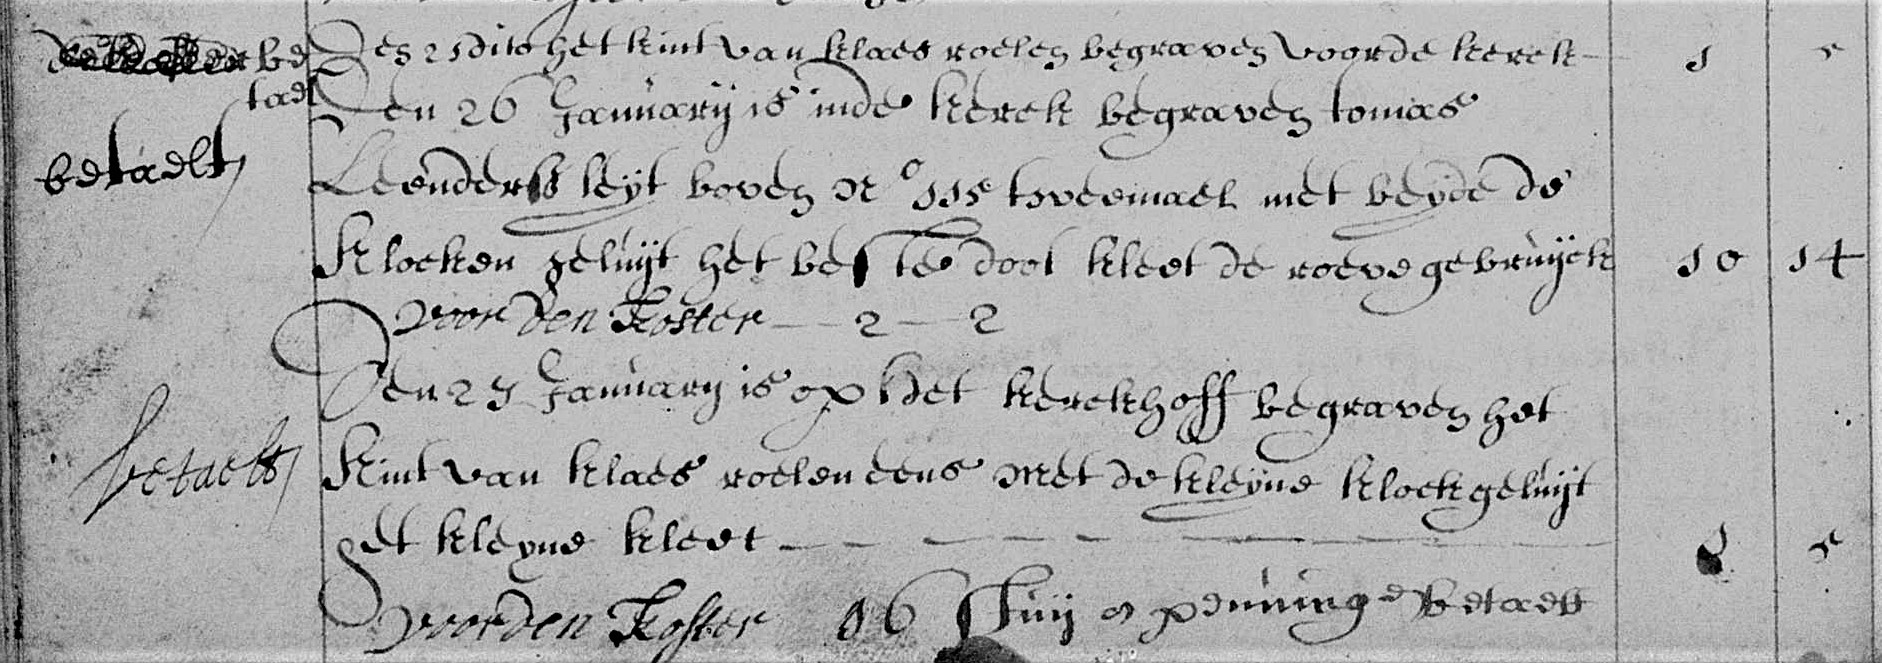 be Den 21 dito het kint van klaes roelen begraven voor de kerck 1 5
taelt Den 26 January is inde kerck begraven tomas
betaelt Leenderss leyt boven No 115 tweemael met beyde de
klocken geluyt het beste doot kleet de roeve gebruyck 10 14
voor den Koster 2 2
Den 27 January is op het kerckhoff begraven het
betaelt kint van klaes roelen eens met de kleyne klock geluyt
het kleyne kleet 1 5
voor den Koster 16 stuij penninge Betaelt